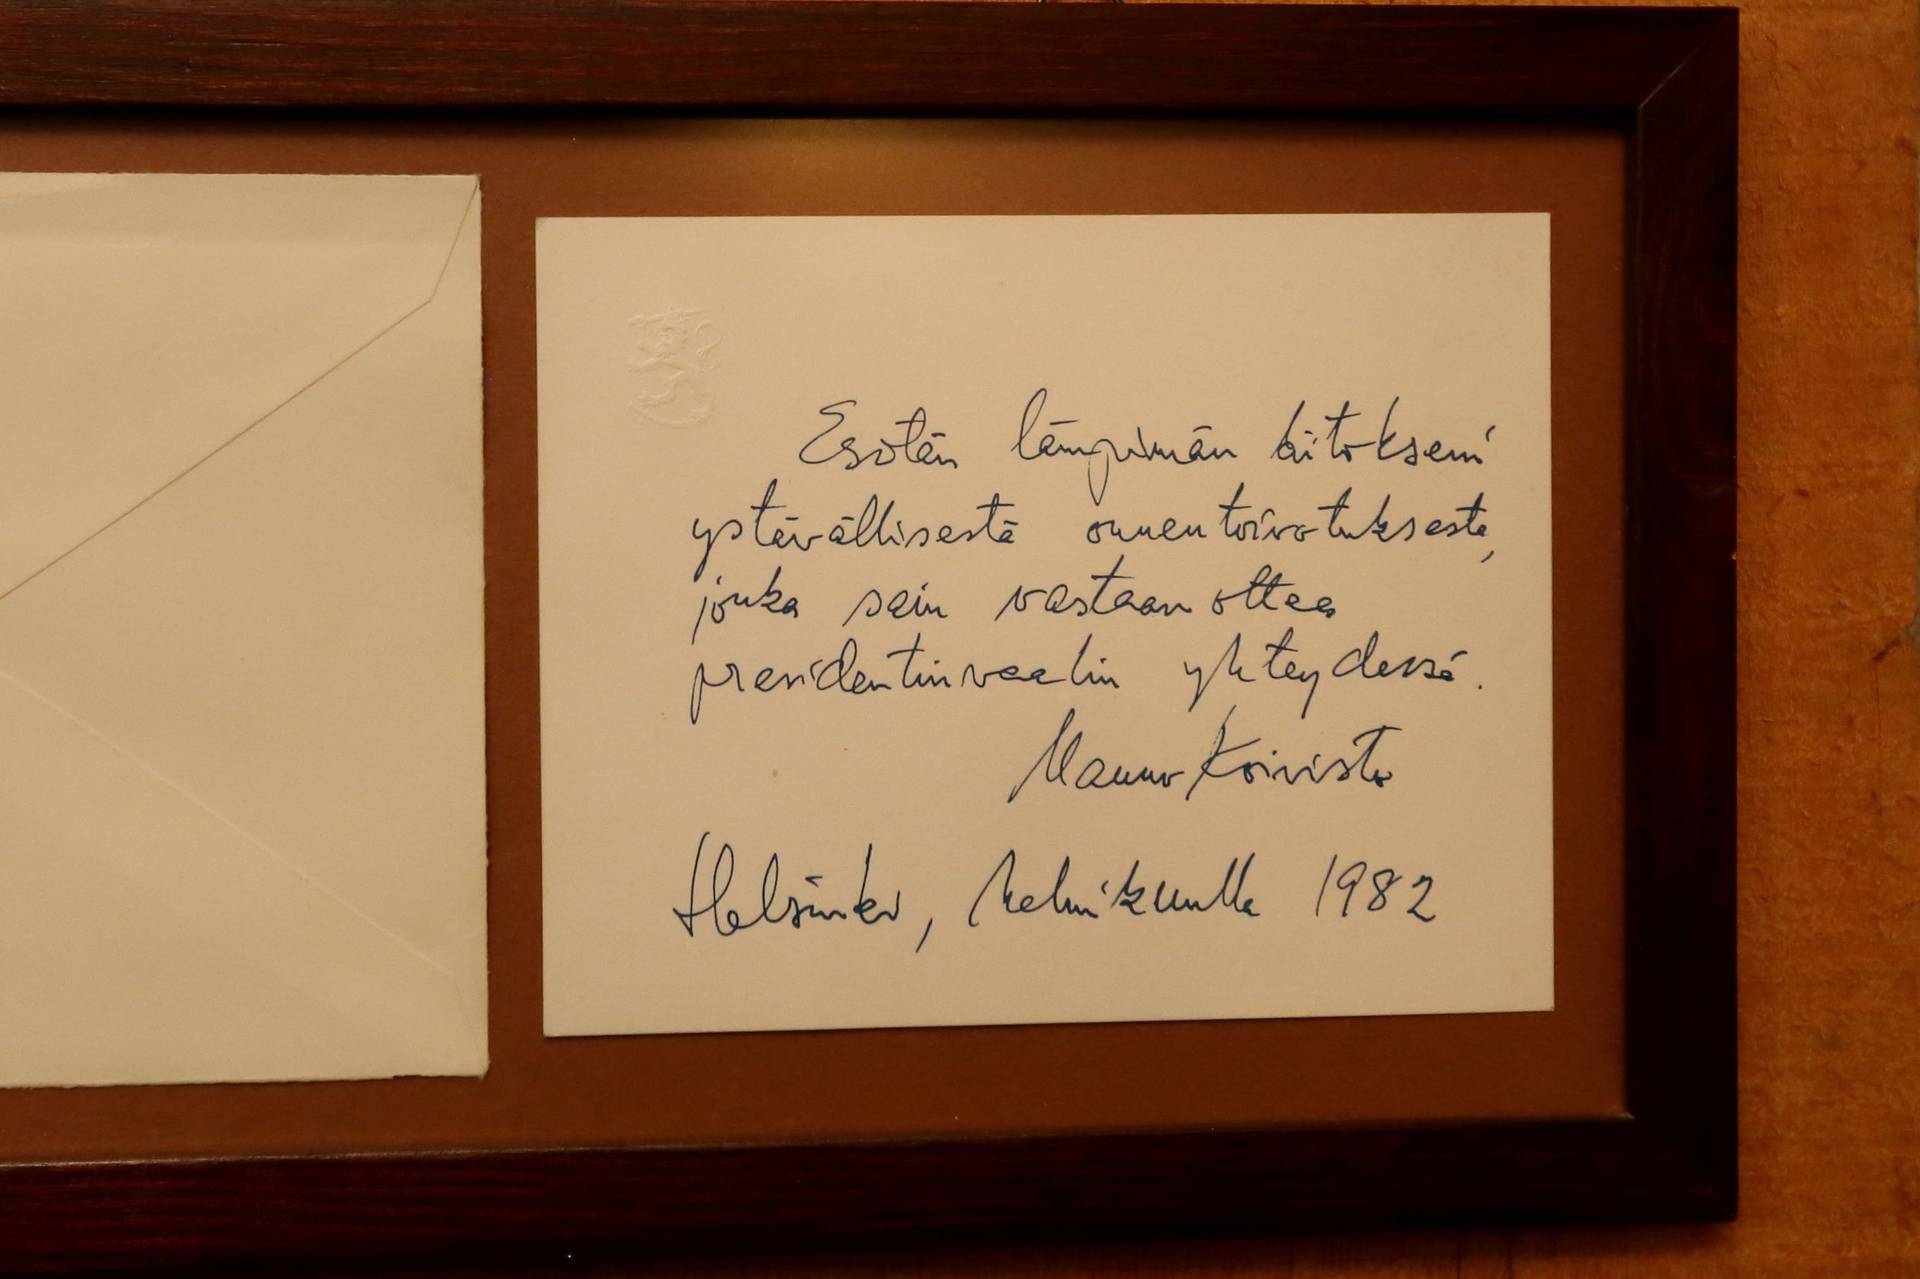 Esitän lämpimän kiitokseni
ystävällisestä onnentoivotuksesta,
jonka sain vastaanottaa
presidentinvaalin yhteydessä.
Mauno Koivisto
Helsinki, helmikuulla 1982